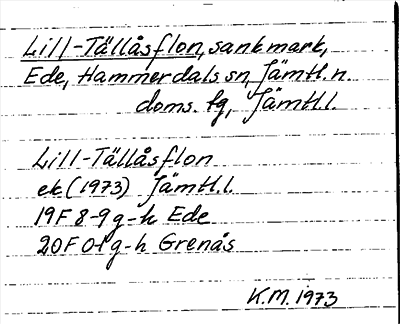 Lill-Tällåsflon, sankmark,
Ede, Hammerdals sn, Jämtl. n.
doms. tg, Jämtl. l.
Lill-Tällåsflon
ek (1973) Jämtl. l.
19F 8-9 g-h Ede
20F 01 g-h Grenås
K.M. 1973